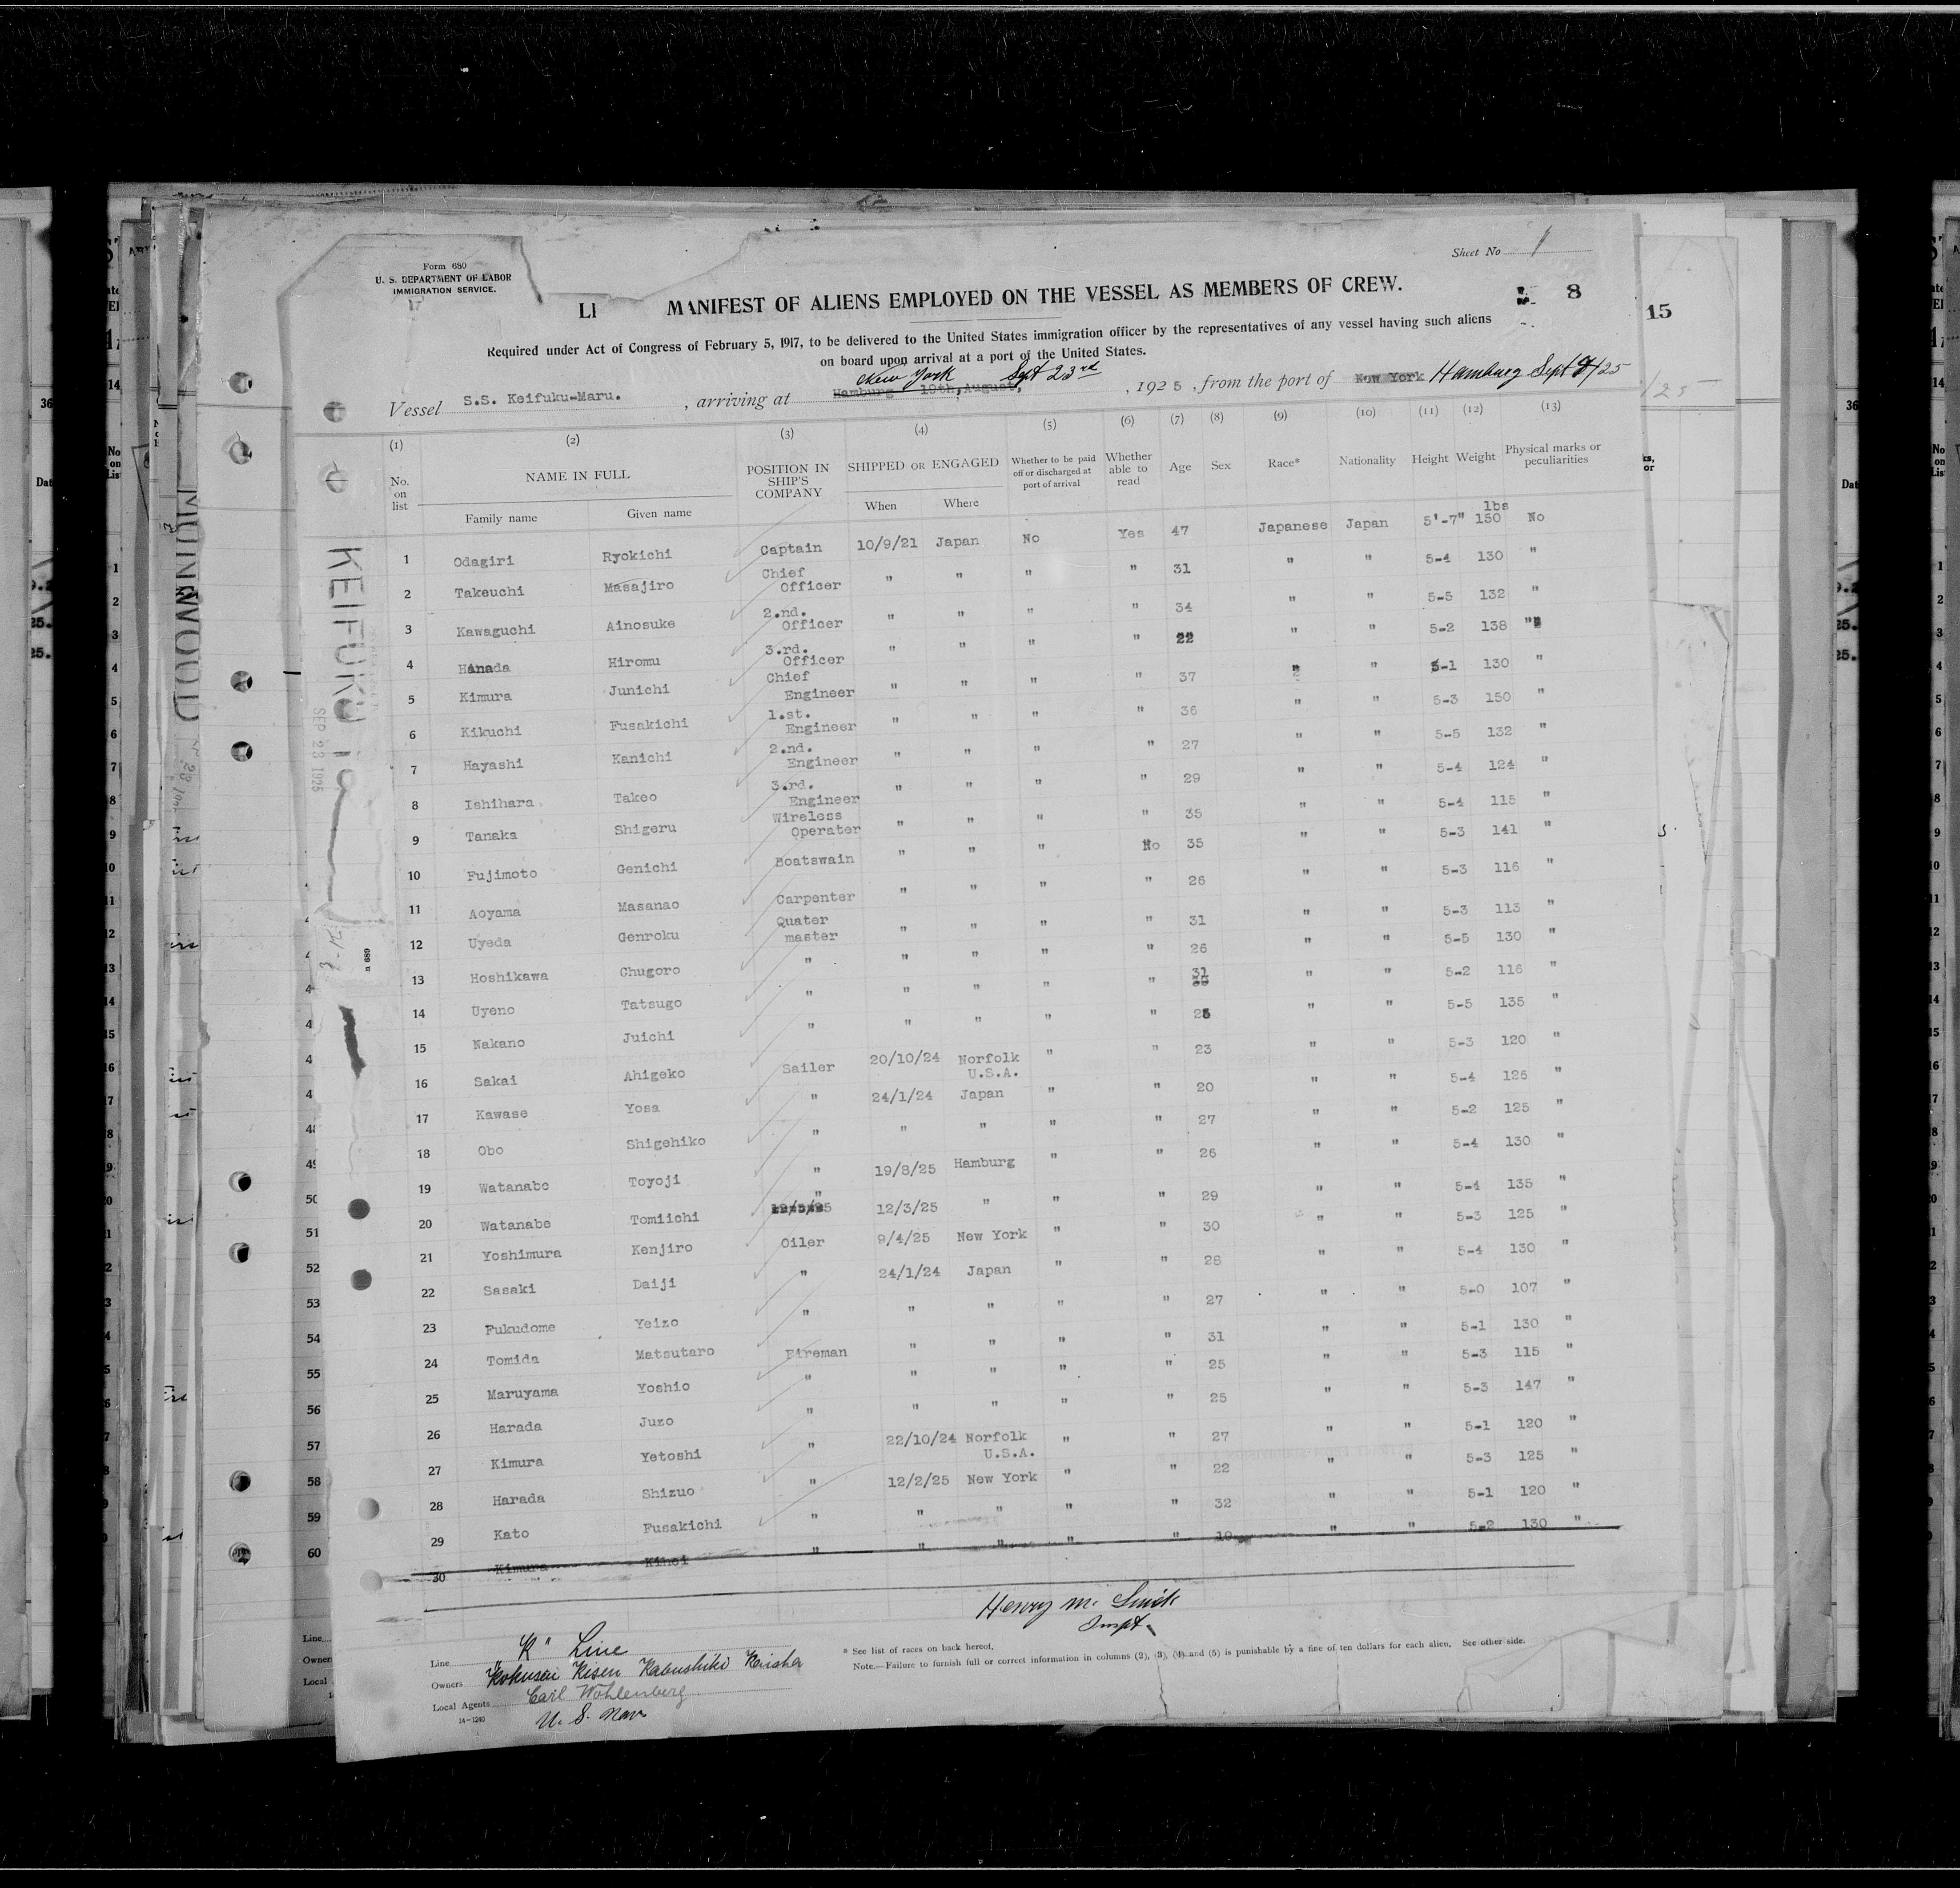 Sheet No 1
Form 680
U. S. DEPARTMENT OF LABOR
IMMIGRATION SERVICE.
LI MANIFEST OF ALIENS EMPLOYED ON THE VESSEL AS MEMBERS OF CREW. 8
15
Required under Act of Congress of February 5, 1917, to be delivered to the United States immigration officer by the representatives of any vessel having such aliens
on board upon arrival at a port of the United States.
New York Sept 23rd
Vessel S.S. Keifuku-Maru. , arriving at Hamburg 19th, August, , 1925 , from the port of New York Hamburg Sept 9/25
(1) (2) (3) (4) (5) (6) (7) (8) (9) (10) (11) (12) (13)
No. on list NAME IN FULL POSITION IN SHIP'S COMPANY SHIPPED OR ENGAGED Whether to be paid off or discharged at port of arrival Whether able to read Age Sex Race* Nationality Height Weight Physical marks or peculiarities
Family name Given name When Where
1 Odagiri Ryokichi Captain 10/9/21 Japan No Yes 47 Japanese Japan 5'-7" 150 lbs No
2 Takeuchi Masajiro Chief Officer " " " " 31 " " 5-4 130 "
3 Kawaguchi Ainosuke 2.nd. Officer " " " " 34 " " 5-5 132 "
4 Hanada Hiromu 3.rd. Officer " " " " 22 " " 5-2 138 "
5 Kimura Junichi Chief Engineer " " " " 37 " " 5-1 130 "
6 Kikuchi Fusakichi 1.st. Engineer " " " " 36 " " 5-3 150 "
7 Hayashi Kanichi 2.nd. Engineer " " " " 27 " " 5-5 132 "
8 Ishihara Takeo 3.rd. Engineer " " " " 29 " " 5-4 124 "
9 Tanaka Shigeru Wireless Operater " " " " 35 " " 5-4 115 "
10 Fujimoto Genichi Boatswain " " " No 35 " " 5-3 141 "
11 Aoyama Masanao Carpenter " " " " 26 " " 5-3 116 "
12 Uyeda Genroku Quater master " " " " 31 " " 5-3 113 "
13 Hoshikawa Chugoro " " " " " 26 " " 5-5 130 "
14 Uyeno Tatsugo " " " " " 31 " " 5-2 116 "
15 Nakano Juichi " " " " " " " 5-5 135 "
16 Sakai Ahigeko Sailer 20/10/24 Norfolk U.S.A. " " 23 " " 5-3 120 "
17 Kawase Yosa " 24/1/24 Japan " " 20 " " 5-4 126 "
18 Obo Shigehiko " " " " " 27 " " 5-2 125 "
19 Watanabe Toyoji " 19/8/25 Hamburg " " 26 " " 5-4 130 "
20 Watanabe Tomiichi " 12/3/25 " " " 29 " " 5-4 135 "
21 Yoshimura Kenjiro Oiler 9/4/25 New York " " 30 " " 5-3 125 "
22 Sasaki Daiji " 24/1/24 Japan " " 28 " " 5-4 130 "
23 Fukudome Yeizo " " " " " 27 " " 5-0 107 "
24 Tomida Matsutaro Fireman " " " " 31 " " 5-1 130 "
25 Maruyama Yoshio " " " " " 25 " " 5-3 115 "
26 Harada Juzo " " " " " 25 " " 5-3 147 "
27 Kimura Yetoshi " 22/10/24 Norfolk U.S.A. " " 27 " " 5-1 120 "
28 Harada Shizuo " 12/2/25 New York " " 22 " " 5-3 125 "
29 Kato Fusakichi " " " " " 32 " " 5-1 120 "
30 Kimura Kihei " " " " " 19 " " 5-2 130 "
Henry M. Smith
Inspt.
Line "K" Line
Owners Kokusai Kisen Kabushiki Kaisha
Local Agents Carl Wohlenberg
14-1240
* See list of races on back hereof.
Note.—Failure to furnish full or correct information in columns (2), (3), (4) and (5) is punishable by a fine of ten dollars for each alien. See other side.
KEIFUKU
SEP 23 1925
MUNWOOD
n 689
50
51
52
53
54
55
56
57
58
59
60